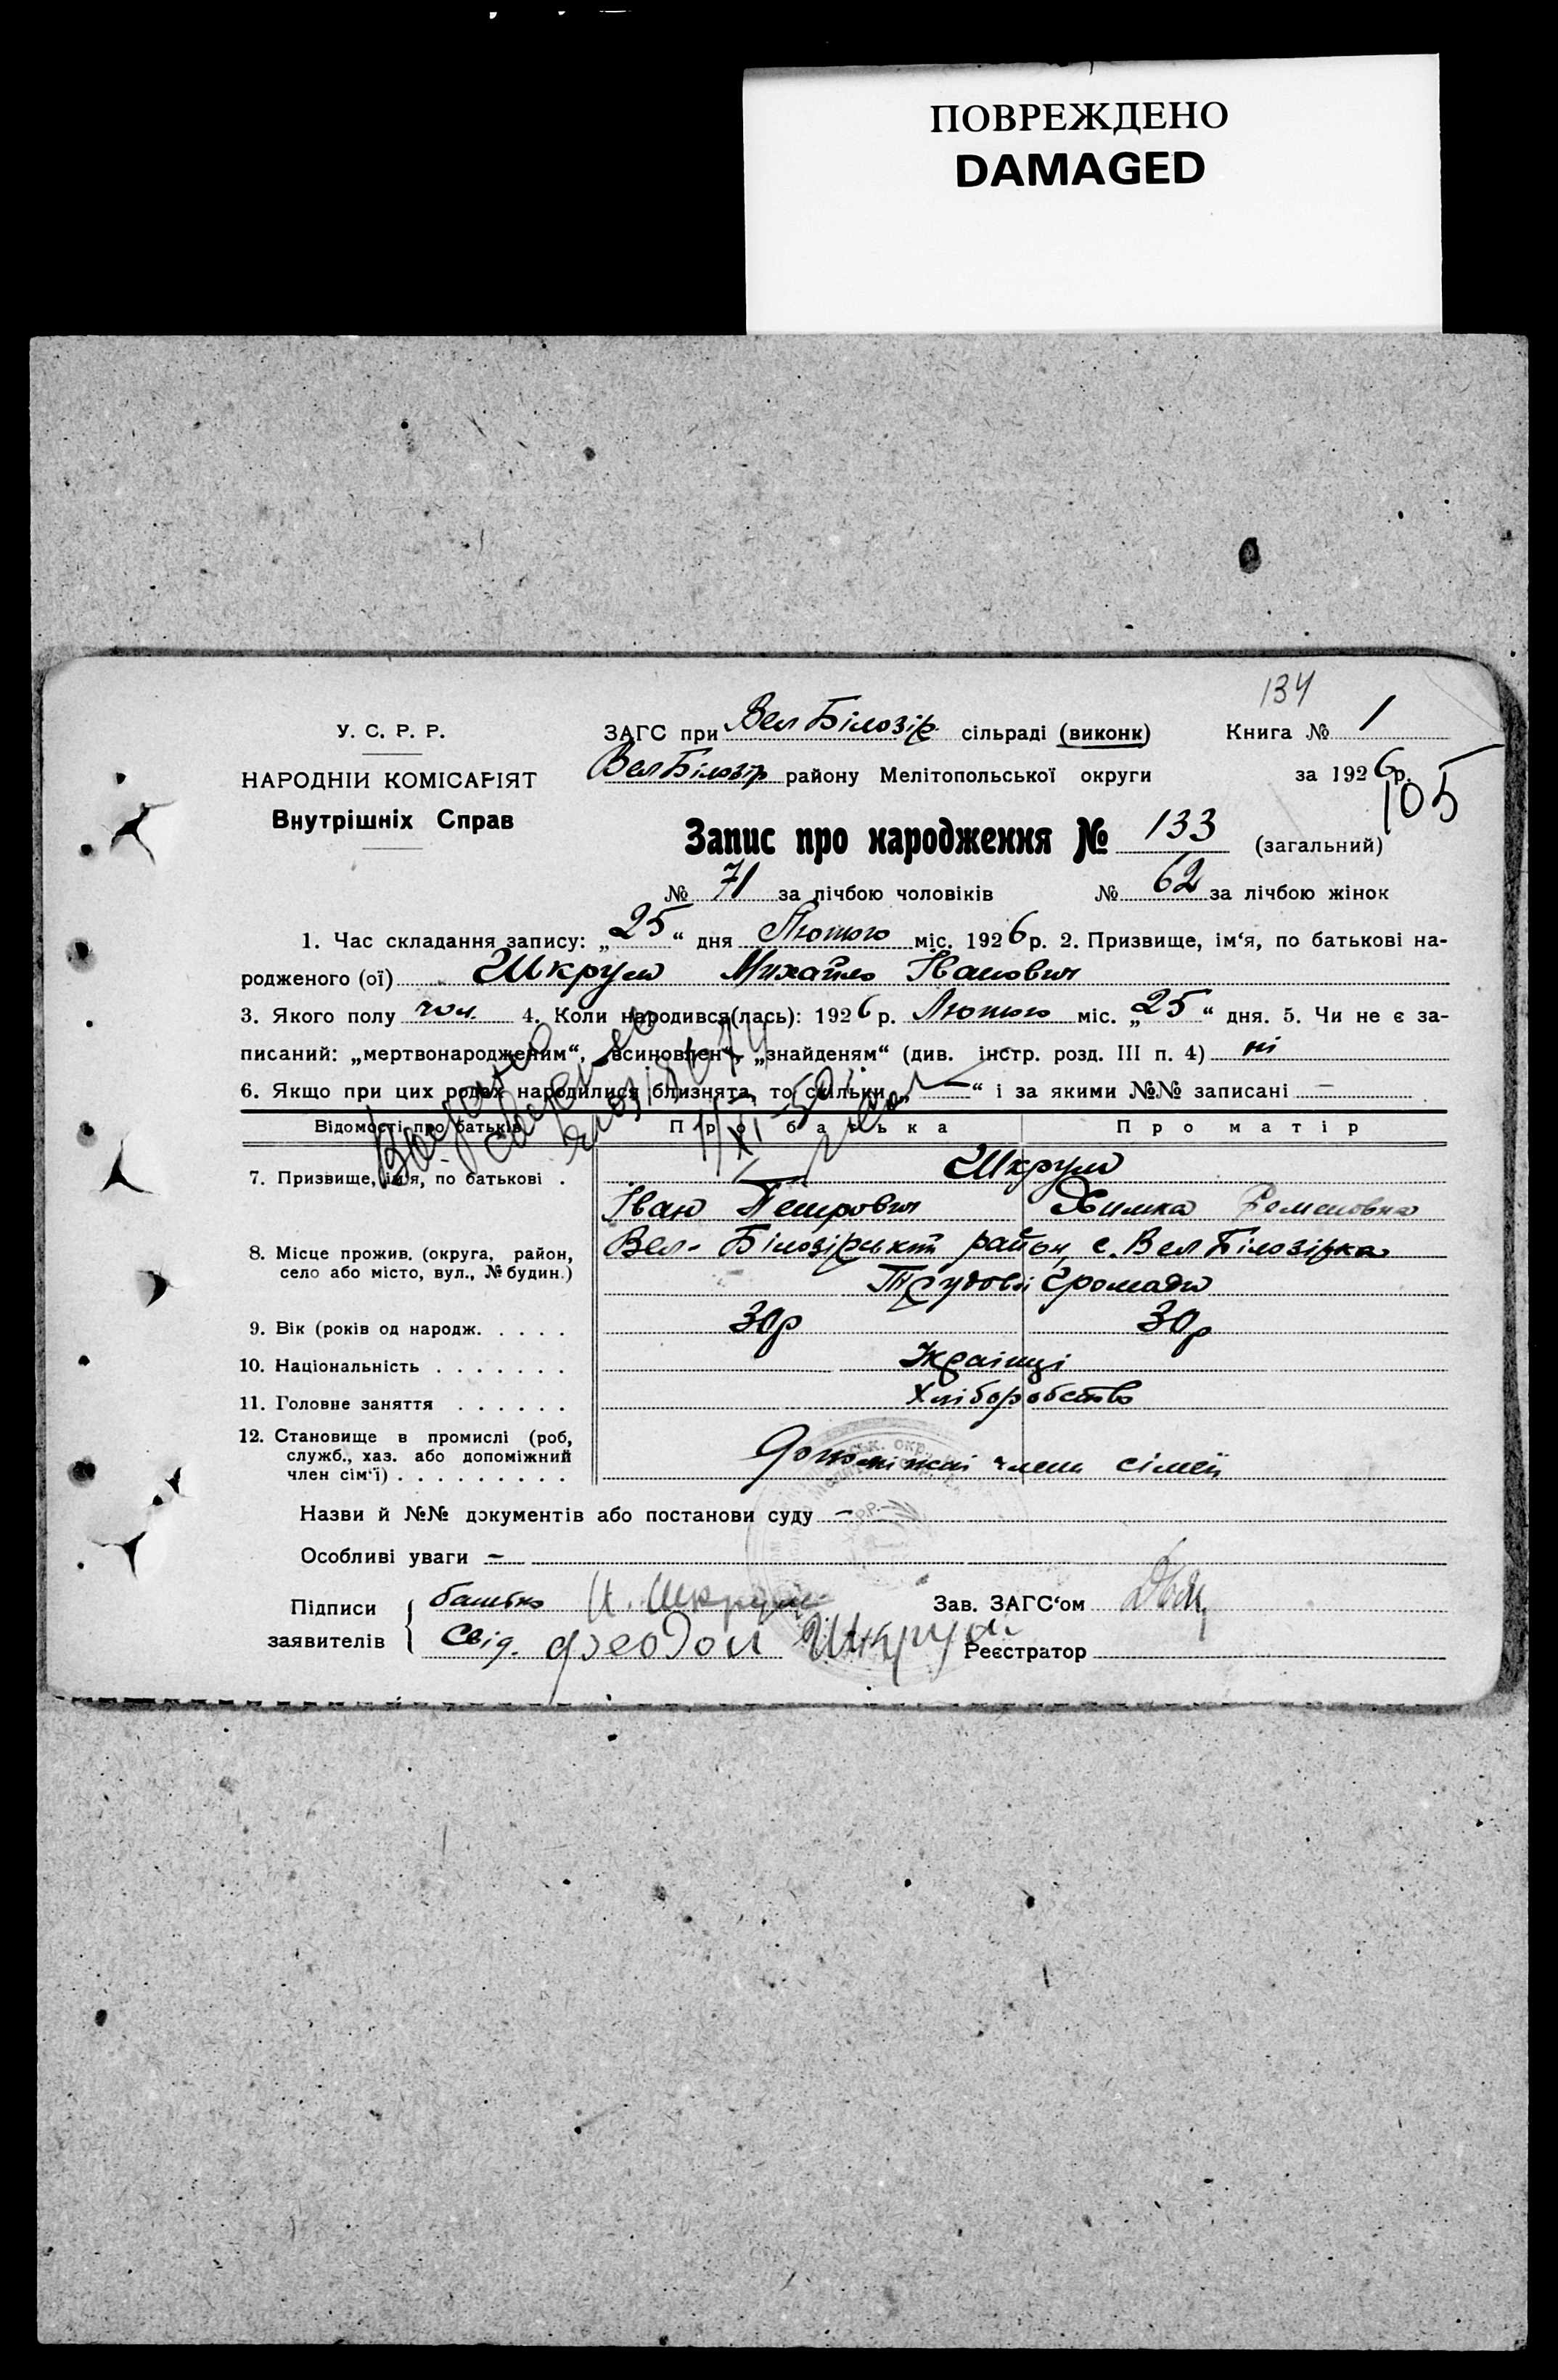 ПОВРЕЖДЕНО
DAMAGED
134
У. С. Р. Р.
ЗАГС при Вел Білозір. сільраді (виконк)
Книга № 1
НАРОДНІЙ КОМІСАРІЯТ
Вел Білозір району Мелітопольської округи
за 1926 р.
105
Внутрішніх Справ
Запис про народження № 133 (загальний)
№ 71 за лічбою чоловіків № 62 за лічбою жінок
1. Час складання запису: „25“ дня Лютого міс. 1926 р. 2. Призвище, ім‘я, по батькові на-
родженого (ої) Шкрум Михайло Іванович
3. Якого полу чол. 4. Коли народився(лась): 1926 р. Лютого міс. „25“ дня. 5. Чи не є за-
писаний: „мертвонародженим“, „всиновлен“, „знайденям“ (див. інстр. розд. III п. 4) ні
6. Якщо при цих родах народилися близнята, то скільки „—“ і за якими №№ записані —
Відомості про батьків Про батька Про матір
7. Призвище, ім‘я, по батькові . Шкрум
Іван Петрович Химка
8. Місце прожив. (округа, район, Вел- Білозірський район, с. Вел Білозірка
село або місто, вул., № будин.) Трудової Громади
9. Вік (років од народж. . . . . 30р 30р
10. Національність . . . . . . . Українці
11. Головне заняття . . . . . . Хліборобство
12. Становище в промислі (роб,
служб., хаз. або допоміжний Допоміжні члени сімей
член сім‘ї) . . . . . . . . .
Назви й №№ документів або постанови суду —
Особливі уваги —
Підписи батько И. Шкрум Зав. ЗАГС‘ом
заявителів Свід. Феодой Шкрум Реєстратор